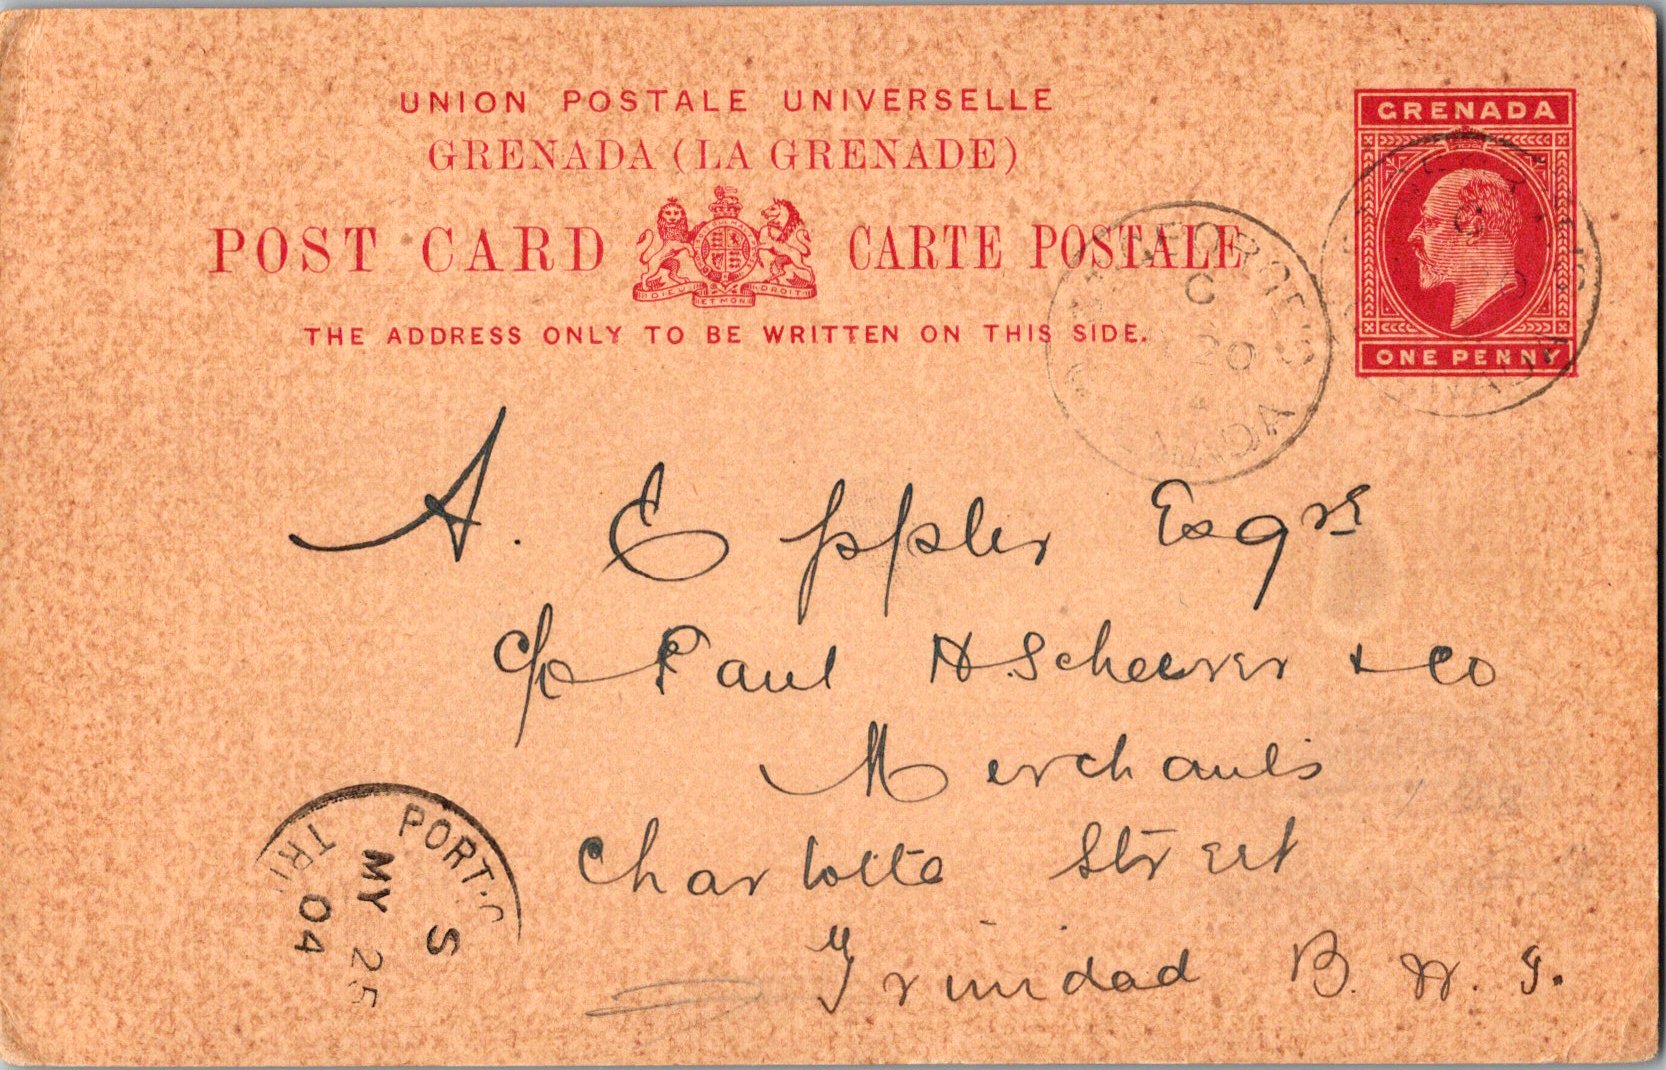 UNION POSTALE UNIVERSELLE
GRENADA (LA GRENADE)
POST CARD CARTE POSTALE
DIEU ET MON DROIT
THE ADDRESS ONLY TO BE WRITTEN ON THIS SIDE.
GRENADA
ONE PENNY
ST. GEORGE'S
C
20
A. Eppler Esqre
c/o Paul H. Scheerer & Co
Merchants
Charlotte Street
Trinidad B. W. I.
PORT-O
S
MY 25
04
TRI